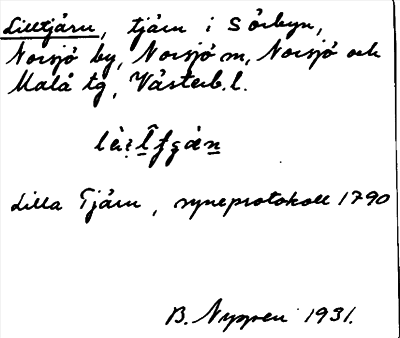 Lilltjärn, tjärn i Sörbyn,
Norsjö by, Norsjö sn, Norsjö och
Malå tg, Västerb. l.
Lilla Tjärn, syneprotokoll 1790
B. Nygren 1931.